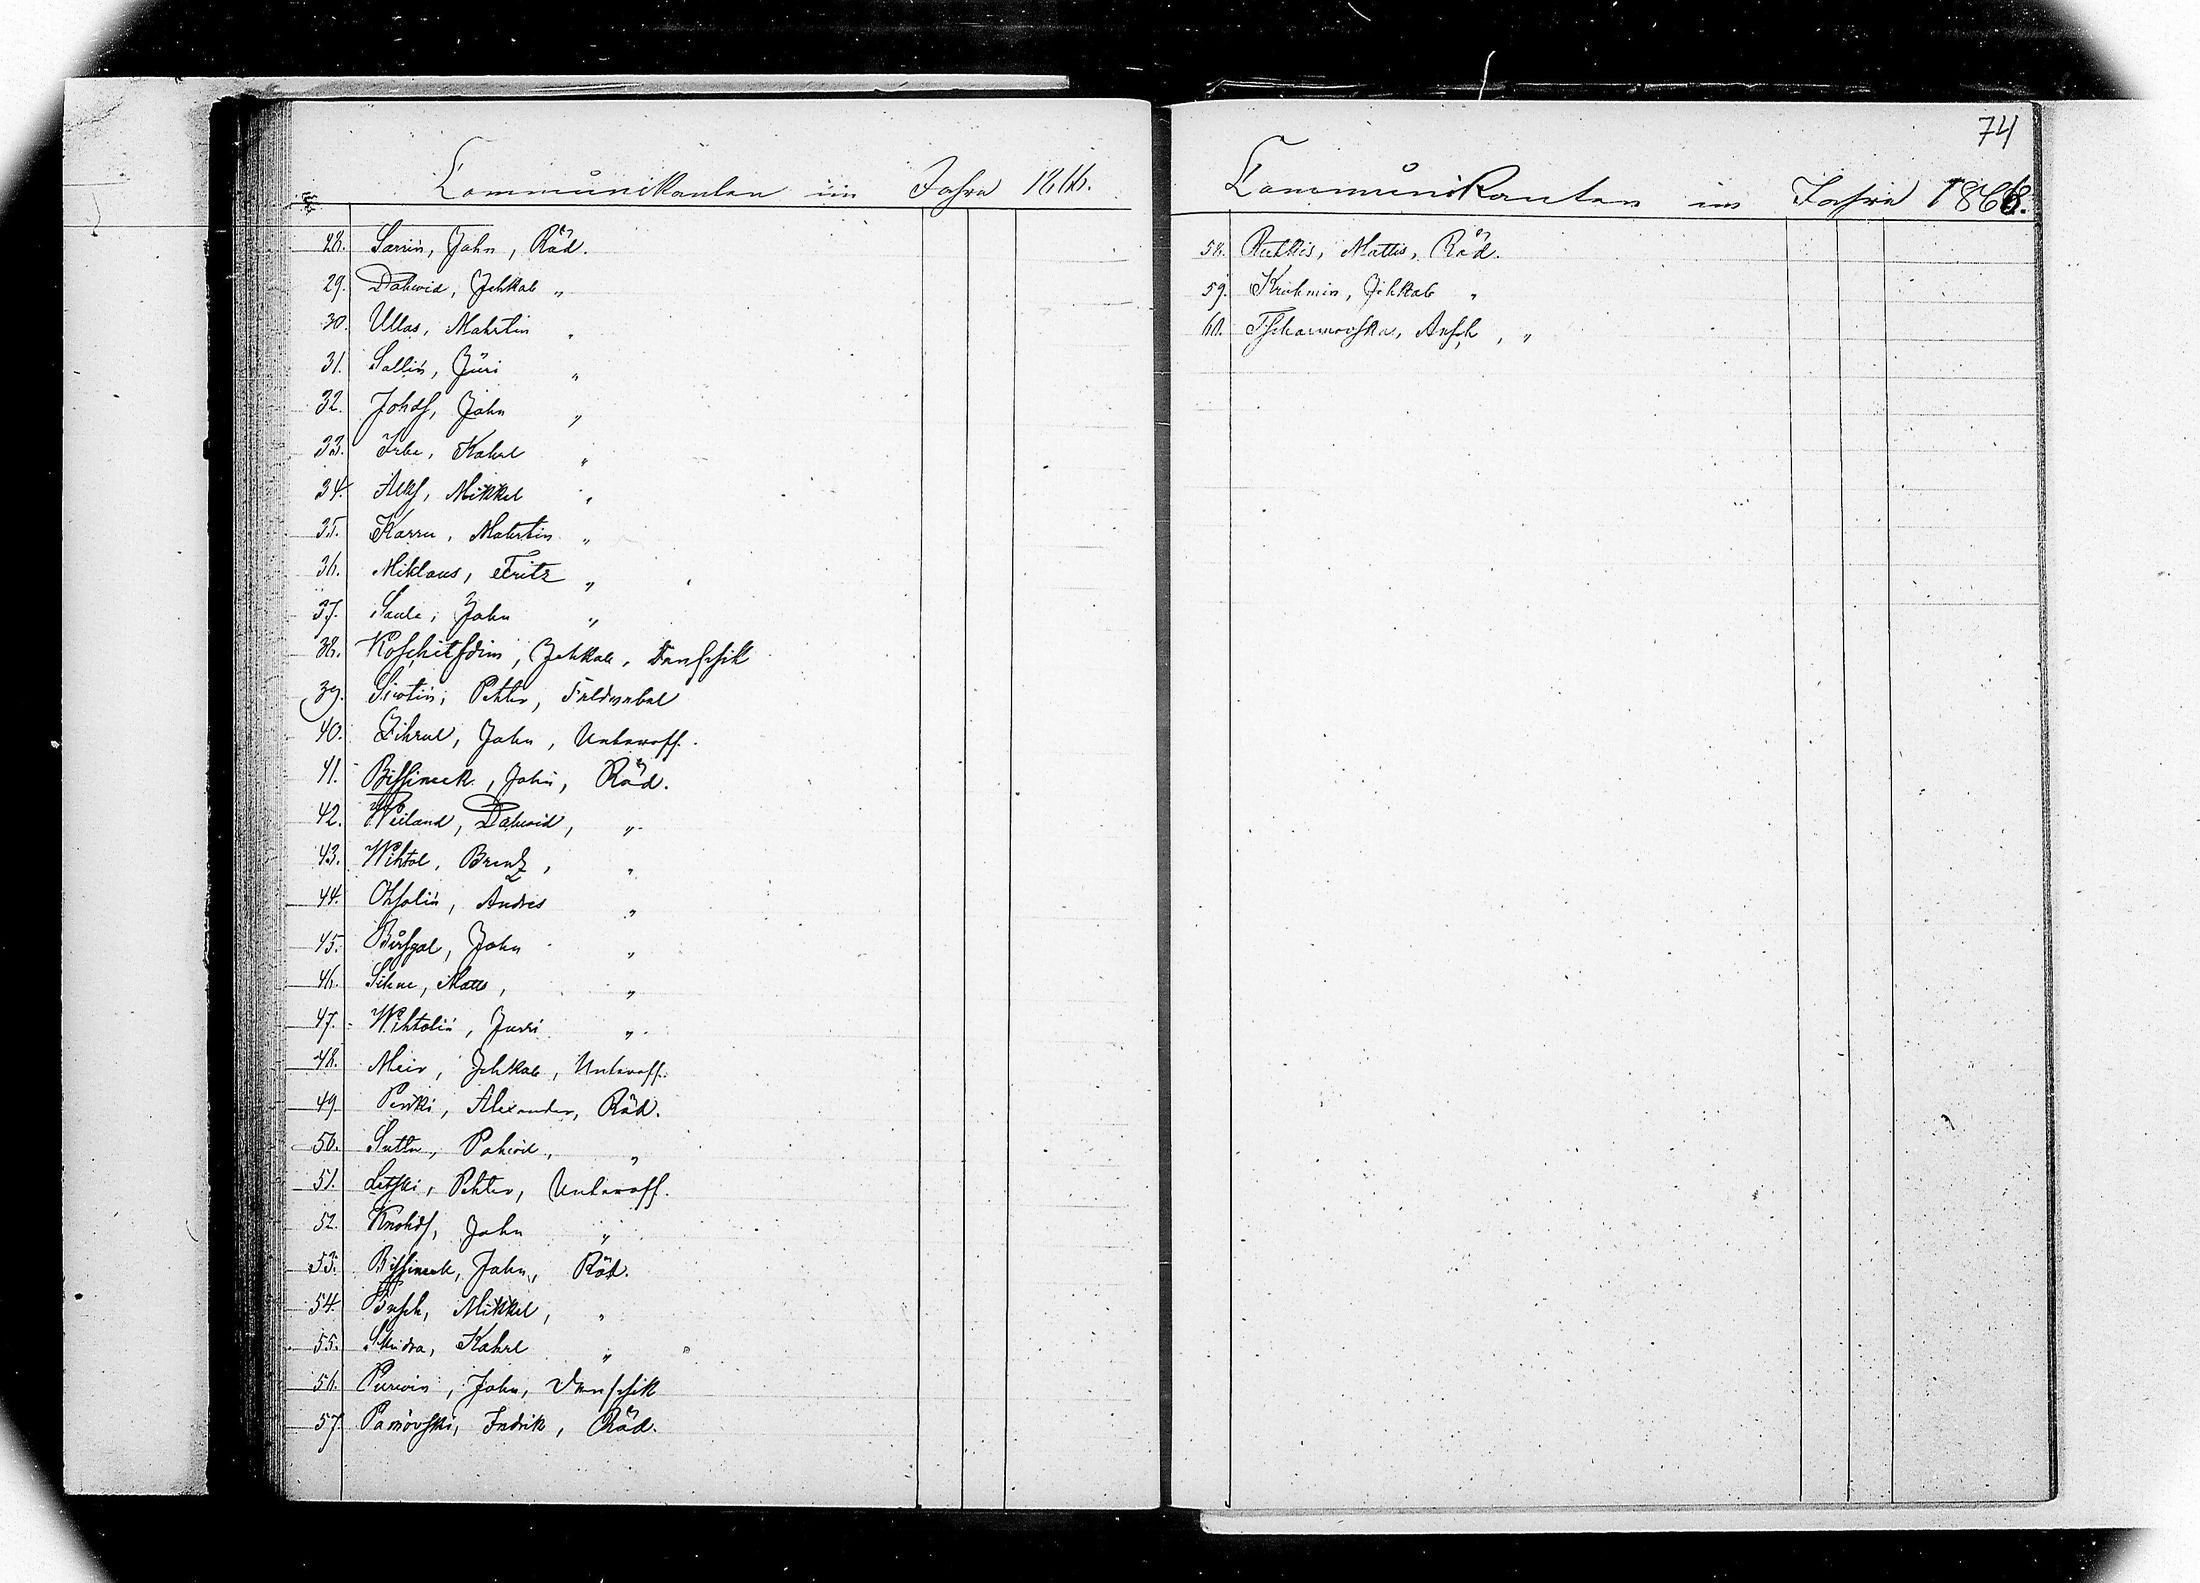 Communikanten im Jahre 1866.
28. Sarrin, Jahn, Räd.
29. Dahwid, Jehkab "
30. Ullas, Mahrtin "
31. Sallin, Jüri "
32. Johds, Jahn "
33. Irbe, Kahrl "
34. Alks, Mikkel "
35. Karru, Mahrtin "
36. Miklaus, Fritz "
37. Saule, Jahn "
38. Jehkab, Denschik
39. Sirotin, Pehter, Feldwebel
40. Zihrul, Jahn, Unteroff.
41. Bissineek, Jahn, Räd.
42. Weiland, Dahwid, "
43. Wihtol, Brenz, "
44. Ohsolin, Andres "
45. Birsgal, Jahn "
46. Sihne, Matts, "
47. Wihtolin, Jurri "
48. Meir, Jehkab, Unteroff.
49. Alexander, Räd.
50. Pahwil, "
51. Letski, Pehter, Unteroff.
52. Knohds, Jahn "
53. Bissineek, Jahn, Räd.
54. Busch, Mikkel, "
55. Skudra, Kahrl "
56. Purwin, Jahn, Denschik
57. Indrik, Räd.
74
Communikanten im Jahre 1866.
58. Rutkis, Mattis, Räd.
59. Kruhmin, Jehkab "
60. Ansch, "